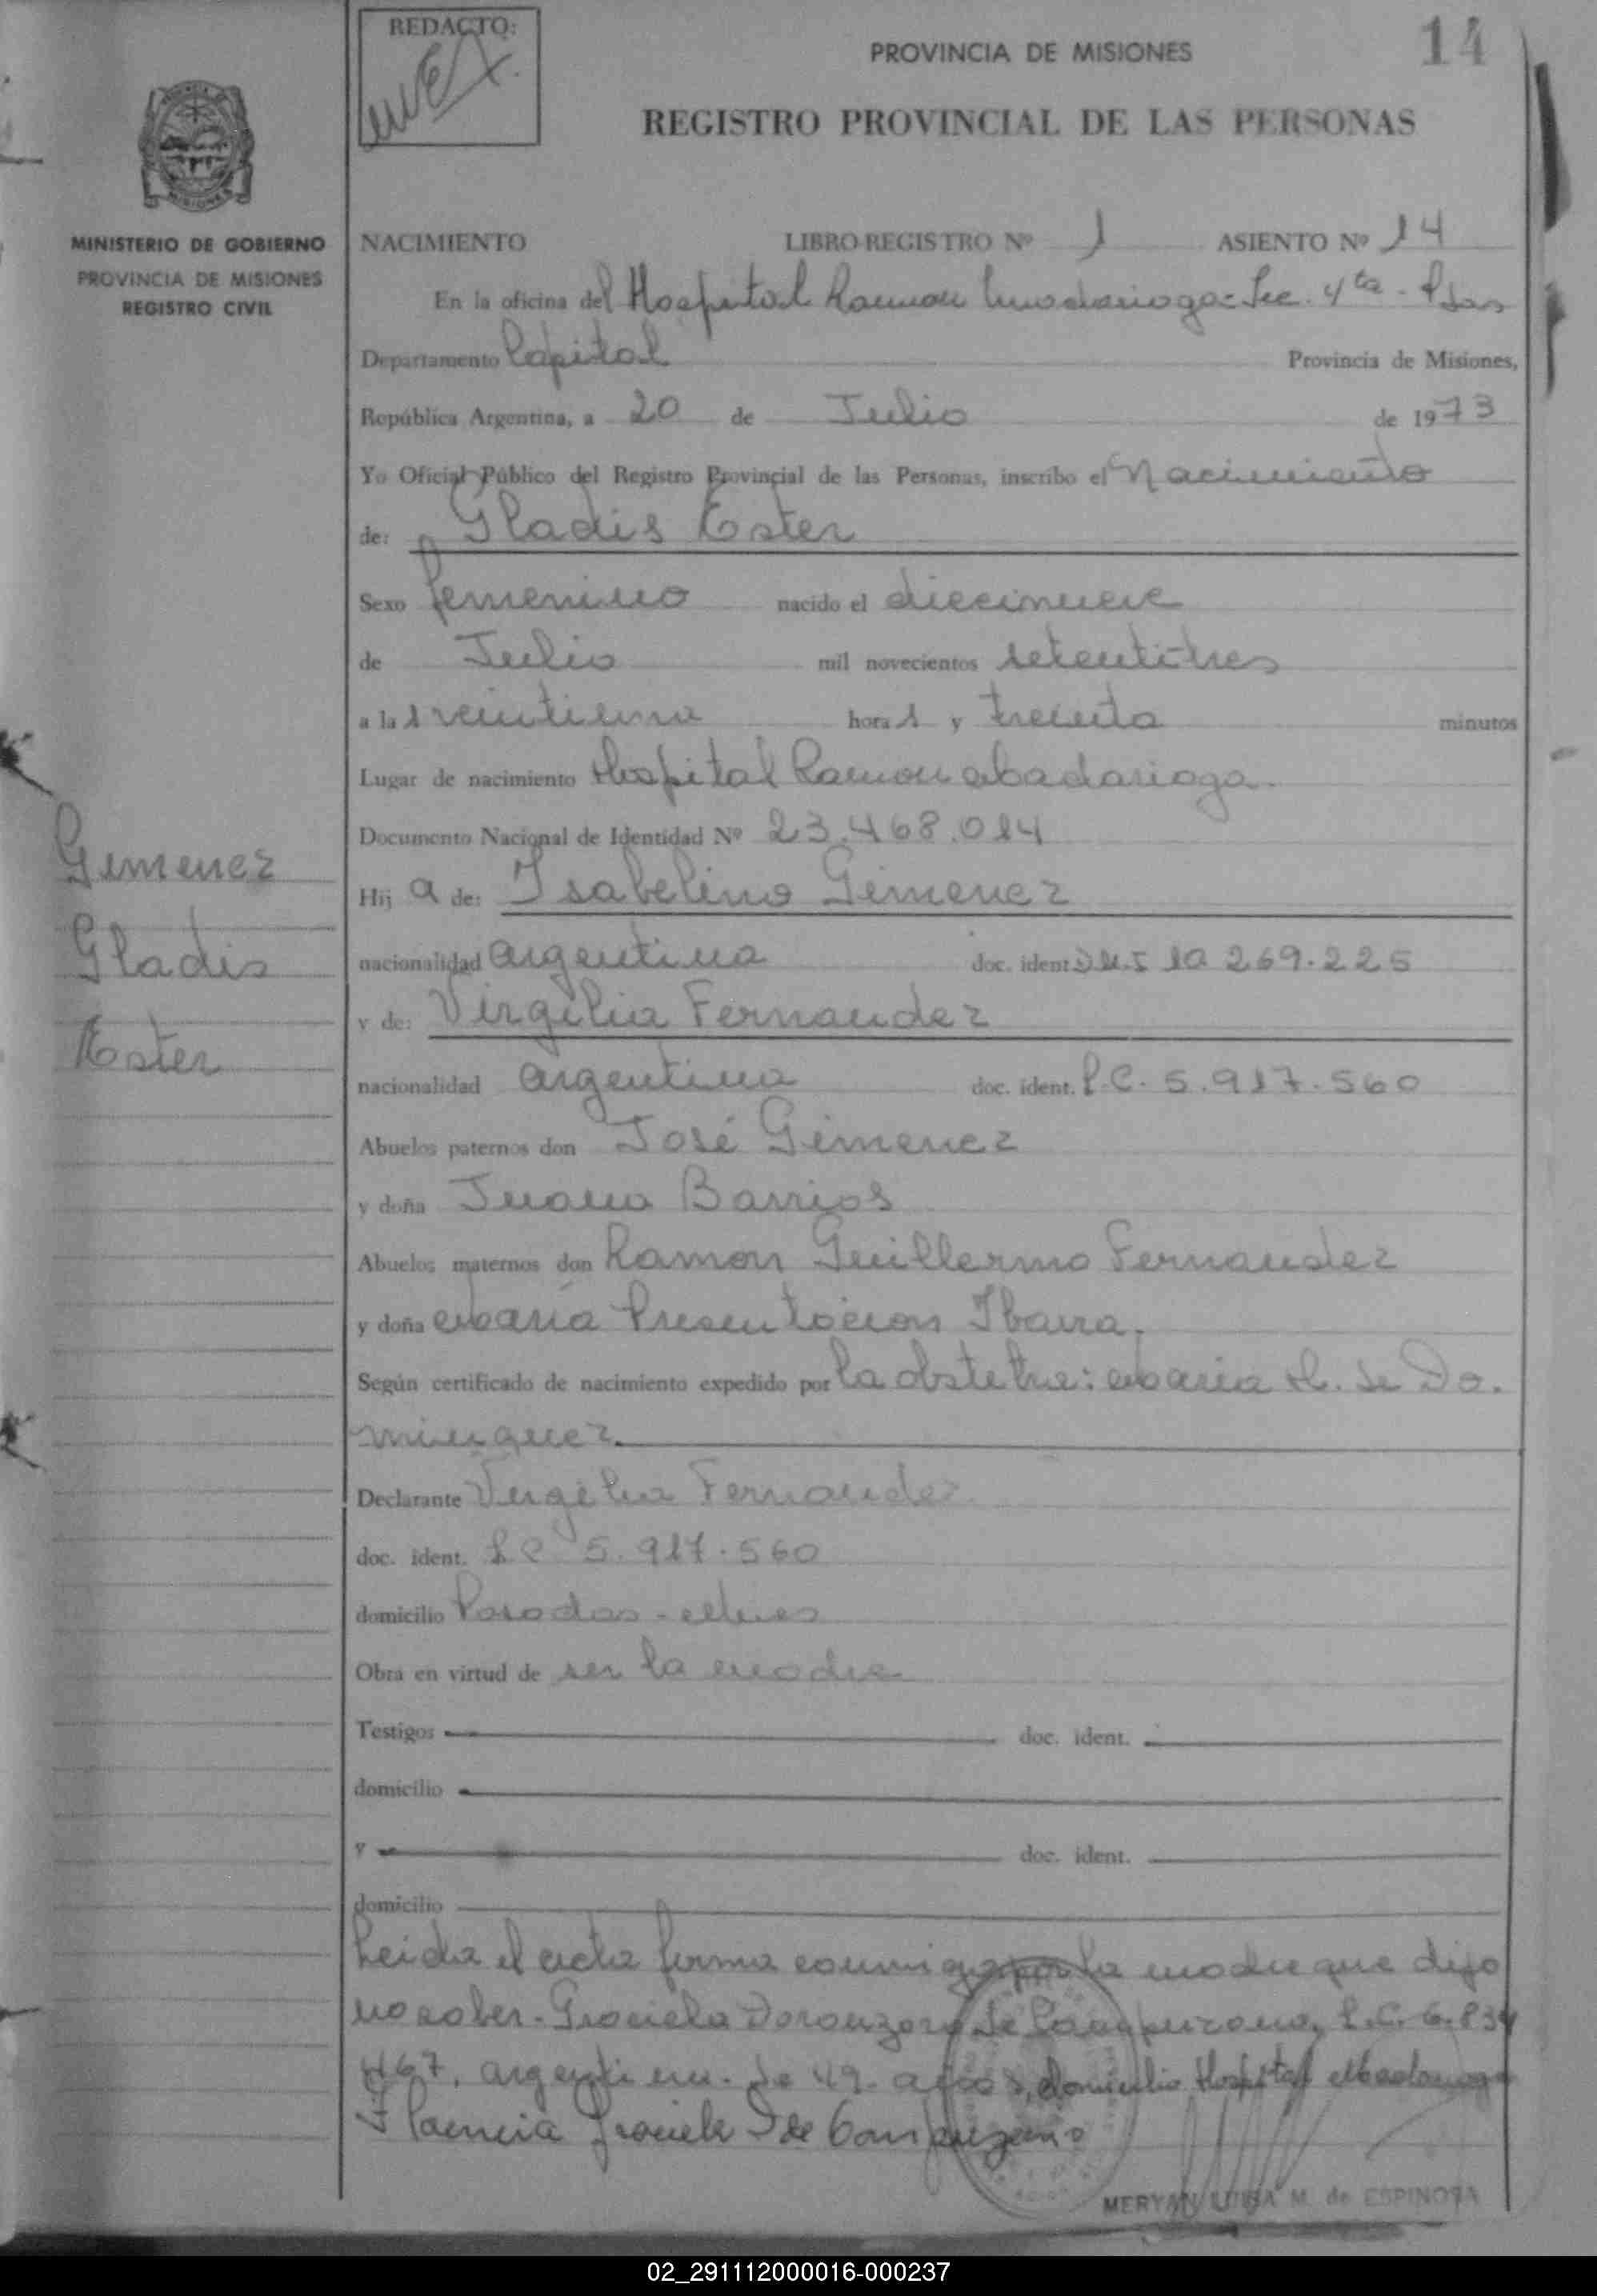 REDACTO:
PROVINCIA DE MISIONES
14
REGISTRO PROVINCIAL DE LAS PERSONAS
MINISTERIO DE GOBIERNO
PROVINCIA DE MISIONES
REGISTRO CIVIL
NACIMIENTO LIBRO REGISTRO Nº 1 ASIENTO Nº 14
En la oficina del Hospital Ramon Sec. 4ta - Pdas
Departamento Capital Provincia de Misiones,
República Argentina, a 20 de Julio de 1973
Yo Oficial Público del Registro Provincial de las Personas, inscribo el Nacimiento
de: Gladis Ester
Sexo femenino nacido el diecinueve
de Julio mil novecientos setentitres
a las veintiuna horas y treinta minutos
Lugar de nacimiento Hospital Ramon Madariaga
Documento Nacional de Identidad Nº 23.468.014
Gimenez
Gladis
Ester
Hija de: Isabelino Gimenez
nacionalidad argentina doc. ident. D.N.I 10.269.225
y de: Virgilia Fernandez
nacionalidad argentina doc. ident. L.C. 5.917.560
Abuelos paternos don José Gimenez
y doña Juana Barrios
Abuelos maternos don Ramon Guillermo Fernandez
y doña Maria Presentacion Ibarra.
Según certificado de nacimiento expedido por la obstetra: Maria H. de Do-
minguez.
Declarante Virgilia Fernandez
doc. ident. L.C 5.917.560
domicilio Posadas - Mnes
Obra en virtud de ser la madre
Testigos doc. ident.
domicilio
y doc. ident.
domicilio
Leida el acta firma conmigo por la madre que dijo
no saber. Graciela de L.C. 6.834
467, argentina. de 49 años, domicilio Hospital Madariaga
Graciela D de
MERYAN LUISA M. de ESPINOSA
02_291112000016-000237